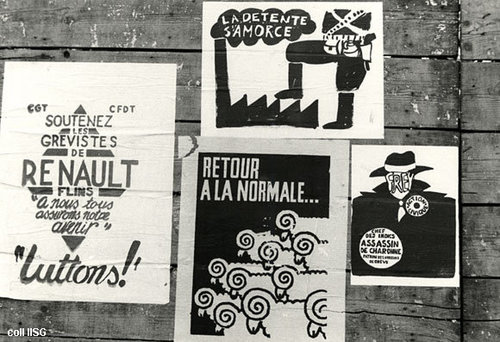 CGT CFDT
SOUTENEZ
LES
GRÉVISTES
DE
RENAULT
FLINS
"à nous tous
assurons notre
avenir"
"luttons!"
LA DETENTE
S'AMORCE
RETOUR
A LA NORMALE...
FREY
ACTION
CIVIQUE
CHEF
DES INDICS
ASSASSIN
DE CHARONNE
PATRON DES
DE GREVE
coll IISG